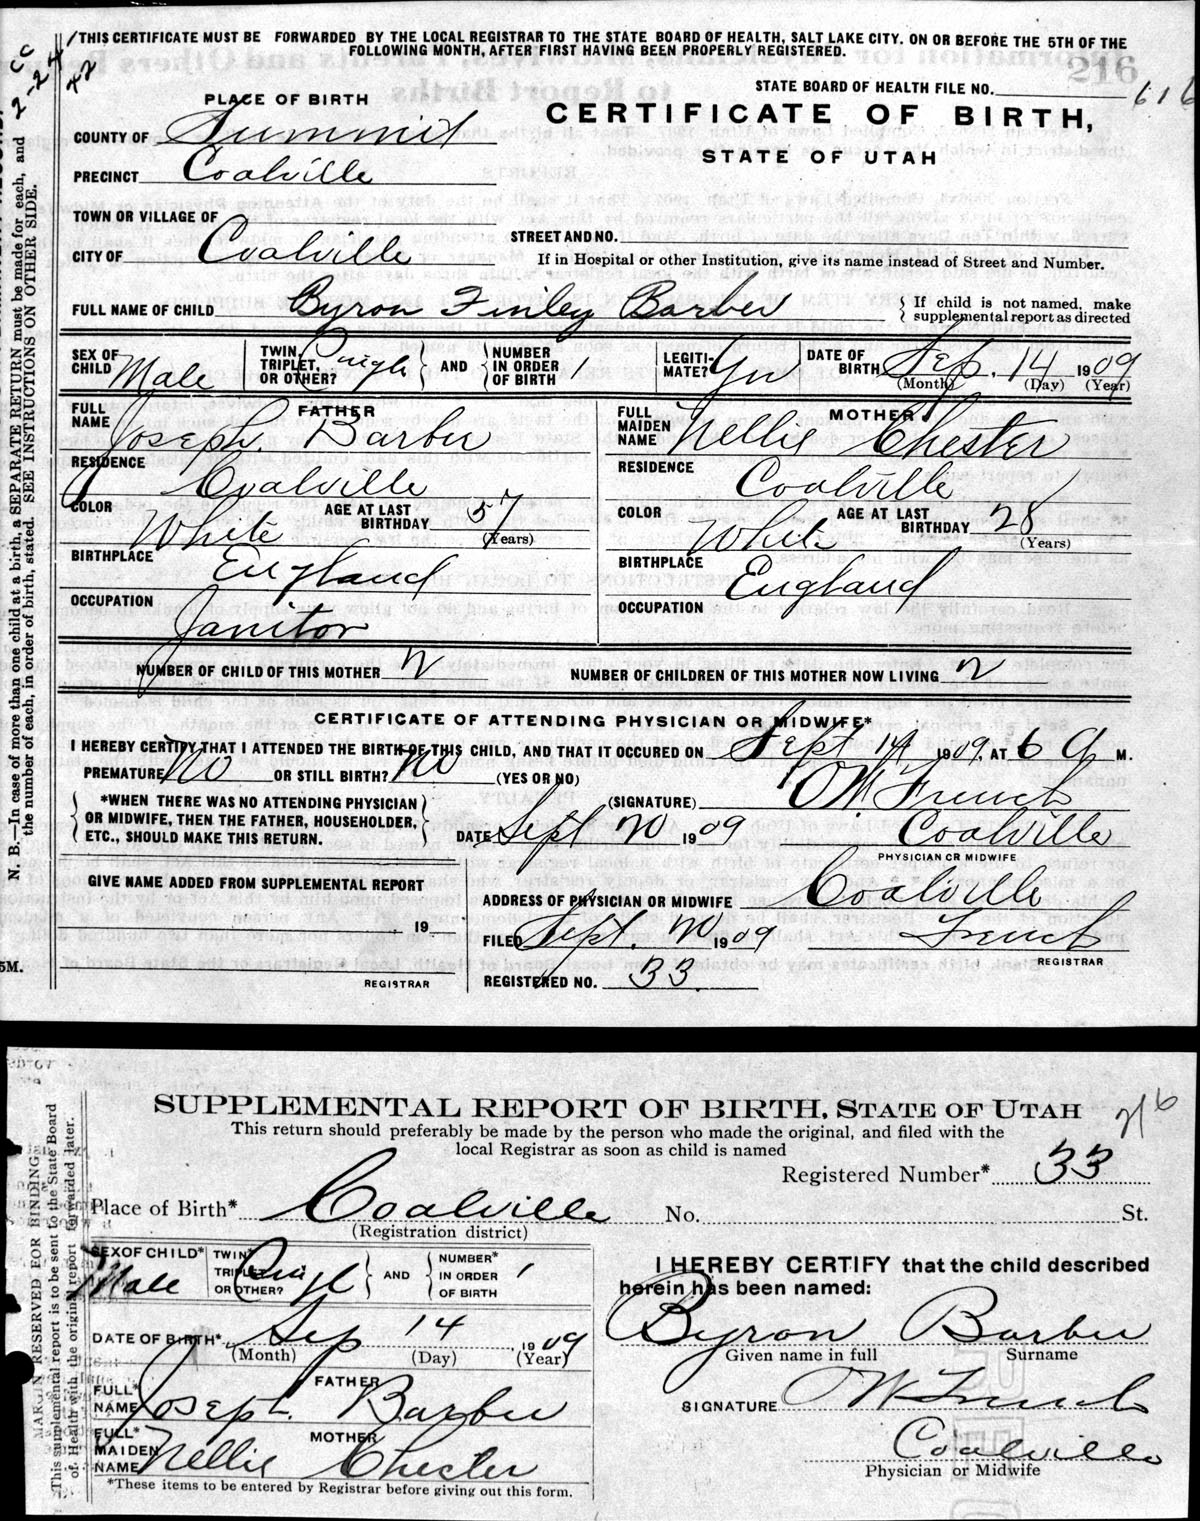 THIS CERTIFICATE MUST BE FORWARDED BY THE LOCAL REGISTRAR TO THE STATE BOARD OF HEALTH, SALT LAKE CITY. ON OR BEFORE THE 5TH OF THE
FOLLOWING MONTH, AFTER FIRST HAVING BEEN PROPERLY REGISTERED.
216
STATE BOARD OF HEALTH FILE NO. 616
PLACE OF BIRTH
CERTIFICATE OF BIRTH,
STATE OF UTAH
COUNTY OF Summit
PRECINCT Coalville
TOWN OR VILLAGE OF
CITY OF Coalville
STREET AND NO.
If in Hospital or other Institution, give its name instead of Street and Number.
FULL NAME OF CHILD Byron Finley Barber { If child is not named, make
supplemental report as directed
SEX OF CHILD Male TWIN, TRIPLET, OR OTHER? Single } AND { NUMBER IN ORDER OF BIRTH 1 LEGITI-MATE? Yes DATE OF BIRTH Sep. 14 1909
(Month) (Day) (Year)
FATHER
FULL NAME Joseph Barber
RESIDENCE Coalville
COLOR White AGE AT LAST BIRTHDAY 57 (Years)
BIRTHPLACE England
OCCUPATION Janitor
MOTHER
FULL MAIDEN NAME Nellie Chester
RESIDENCE Coalville
COLOR White AGE AT LAST BIRTHDAY 28 (Years)
BIRTHPLACE England
OCCUPATION
NUMBER OF CHILD OF THIS MOTHER 2 NUMBER OF CHILDREN OF THIS MOTHER NOW LIVING 2
CERTIFICATE OF ATTENDING PHYSICIAN OR MIDWIFE*
I HEREBY CERTIFY THAT I ATTENDED THE BIRTH OF THIS CHILD, AND THAT IT OCCURED ON Sept 14 1909, AT 6 a M.
PREMATURE No OR STILL BIRTH? No (YES OR NO)
{ *WHEN THERE WAS NO ATTENDING PHYSICIAN
OR MIDWIFE, THEN THE FATHER, HOUSEHOLDER,
ETC., SHOULD MAKE THIS RETURN. }
(SIGNATURE) OW French
DATE Sept 20 1909 Coalville
PHYSICIAN OR MIDWIFE
GIVE NAME ADDED FROM SUPPLEMENTAL REPORT
19
REGISTRAR
ADDRESS OF PHYSICIAN OR MIDWIFE Coalville
FILED Sept. 20 1909 French
REGISTRAR
REGISTERED NO. 33
N. B.—In case of more than one child at a birth, a SEPARATE RETURN must be made for each, and
the number of each, in order of birth, stated. SEE INSTRUCTIONS ON OTHER SIDE.
5M.
SUPPLEMENTAL REPORT OF BIRTH, STATE OF UTAH
216
This return should preferably be made by the person who made the original, and filed with the
local Registrar as soon as child is named
Registered Number* 33
Place of Birth* Coalville No. St.
(Registration district)
SEX OF CHILD* Male TWIN* TRIPLET OR OTHER? Singl } AND { NUMBER* IN ORDER OF BIRTH 1
DATE OF BIRTH* Sep 14 1909
(Month) (Day) (Year)
FATHER
FULL* NAME Joseph Barber
MOTHER
FULL* MAIDEN NAME Nellie Chester
*These items to be entered by Registrar before giving out this form.
I HEREBY CERTIFY that the child described
herein has been named:
Byron Barber
Given name in full Surname
SIGNATURE OW French
Coalville
Physician or Midwife
MARGIN RESERVED FOR BINDING.
This supplemental report is to be sent to the State Board
of Health with the original report forwarded later.